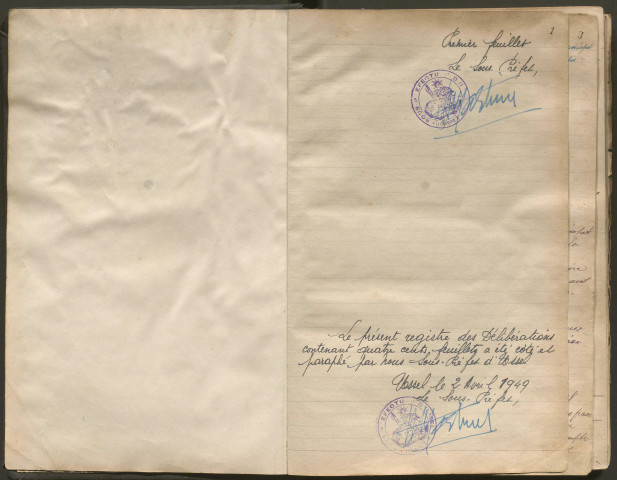 1
3
Premier feuillet
Le Sous Préfet,
Le présent registre des Délibérations
contenant quatre cents, feuillets a été côté et
paraphé par nous = Sous-Préfet d'Ussel
Ussel le 2 Avril 1949
Le Sous-Préfet,